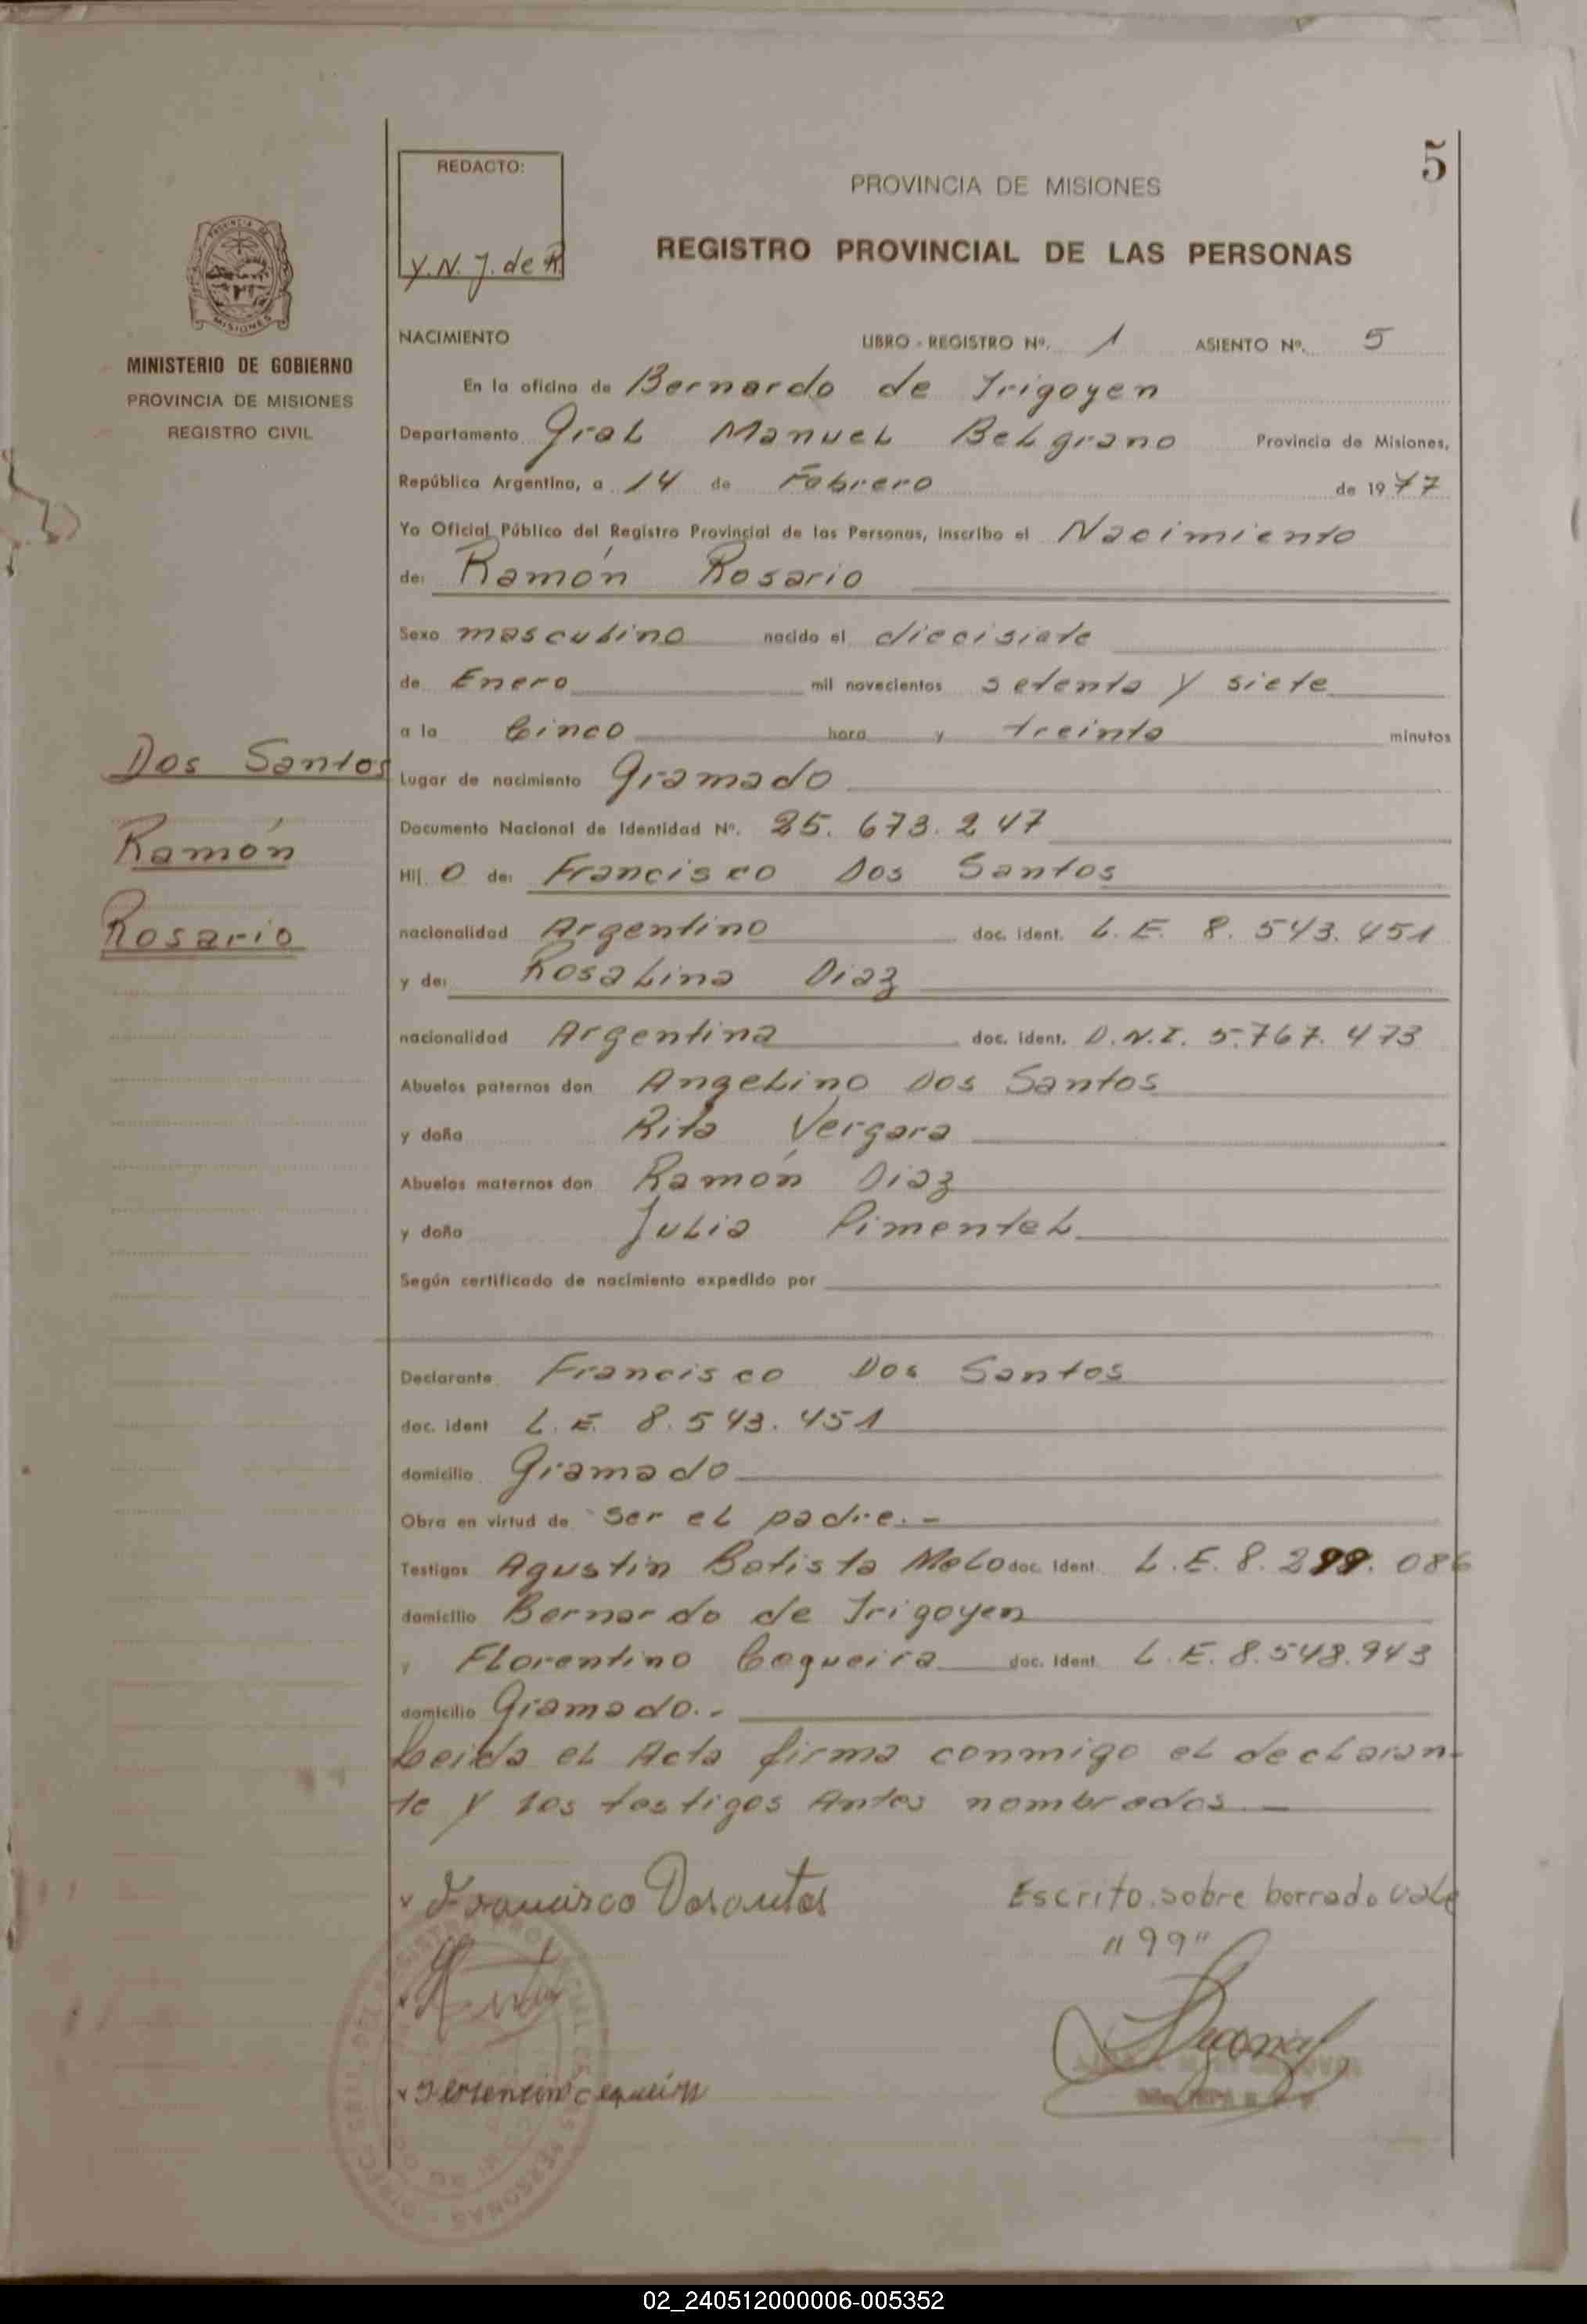 5
REDACTO:
Y.N.J. de R.
PROVINCIA DE MISIONES
REGISTRO PROVINCIAL DE LAS PERSONAS
MINISTERIO DE GOBIERNO
PROVINCIA DE MISIONES
REGISTRO CIVIL
NACIMIENTO LIBRO - REGISTRO Nº. 1 ASIENTO Nº. 5
En la oficina de Bernardo de Irigoyen
Departamento Gral Manuel Belgrano Provincia de Misiones,
República Argentina, a 14 de Febrero de 1977
Yo Oficial Público del Registro Provincial de las Personas, inscribo el Nacimiento
de: Ramón Rosario
Sexo masculino nacido el diecisiete
de Enero mil novecientos setenta y siete
a la Cinco hora y treinta minutos
Dos Santos
Ramón
Rosario
Lugar de nacimiento Gramado
Documento Nacional de Identidad Nº. 25.673.247
Hij o de: Francisco Dos Santos
nacionalidad Argentino doc. ident. L.E. 8.543.451
y de: Rosalina Diaz
nacionalidad Argentina doc. ident. D.N.I. 5.767.473
Abuelos paternos don Angelino Dos Santos
y doña Rita Vergara
Abuelos maternos don Ramón Diaz
y doña Julia Pimentel
Según certificado de nacimiento expedido por
Declarante Francisco Dos Santos
doc. ident L.E. 8.543.451
domicilio Gramado
Obra en virtud de Ser el padre.-
Testigos Agustin Batista Melo doc. ident. L.E. 8.299.086
domicilio Bernardo de Irigoyen
y Florentino Cequeira doc. ident. L.E. 8.548.943
domicilio Gramado.-
Leida el Acta firma conmigo el declaran-
te y los testigos Antes nombrados
x Francisco Dosantos
Escrito sobre borrado vale
"99"
x Florentin Cequeira
02_240512000006-005352